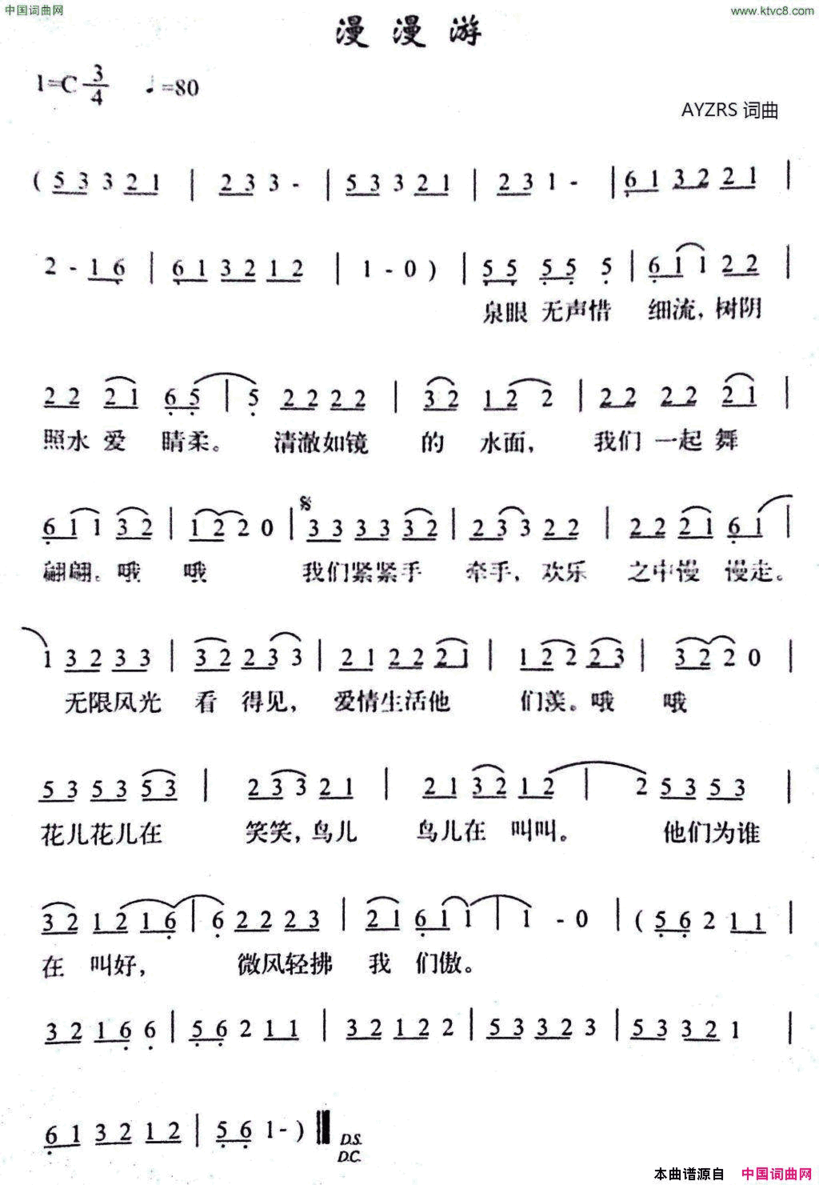 中国词曲网 www.ktvc8.com
漫漫游
1=C 3/4 ♩=80
AYZRS 词曲
( 5 3 3 2 1 | 2 3 3 - | 5 3 3 2 1 | 2 3 1 - | 6 1 3 2 2 1 |
2 - 1 6 | 6 1 3 2 1 2 | 1 - 0 ) | 5 5 5 5 5 | 6 1 1 2 2 |
泉眼 无声惜 细流, 树阴
2 2 2 1 6 5 | 5 2 2 2 2 | 3 2 1 2 2 | 2 2 2 2 2 1 |
照水 爱 睛柔。 清澈如镜 的 水面, 我们 一起 舞
6 1 1 3 2 | 1 2 2 0 | 3 3 3 3 3 2 | 2 3 3 2 2 | 2 2 2 1 6 1 |
翩翩。哦 哦 我们紧紧手 牵手, 欢乐 之中慢 慢走。
1 3 2 3 3 | 3 2 2 3 3 | 2 1 2 2 2 1 | 1 2 2 2 3 | 3 2 2 0 |
无限风光 看 得见, 爱情生活他 们羡。哦 哦
5 3 5 3 5 3 | 2 3 3 2 1 | 2 1 3 2 1 2 | 2 5 3 5 3 |
花儿花儿在 笑笑, 鸟儿 鸟儿在 叫叫。 他们为谁
3 2 1 2 1 6 | 6 2 2 2 3 | 2 1 6 1 1 | 1 - 0 | ( 5 6 2 1 1 |
在 叫好, 微风轻拂 我 们傲。
3 2 1 6 6 | 5 6 2 1 1 | 3 2 1 2 2 | 5 3 3 2 3 | 5 3 3 2 1 |
6 1 3 2 1 2 | 5 6 1 - ) ‖ D.S.
D.C.
本曲谱源自 中国词曲网